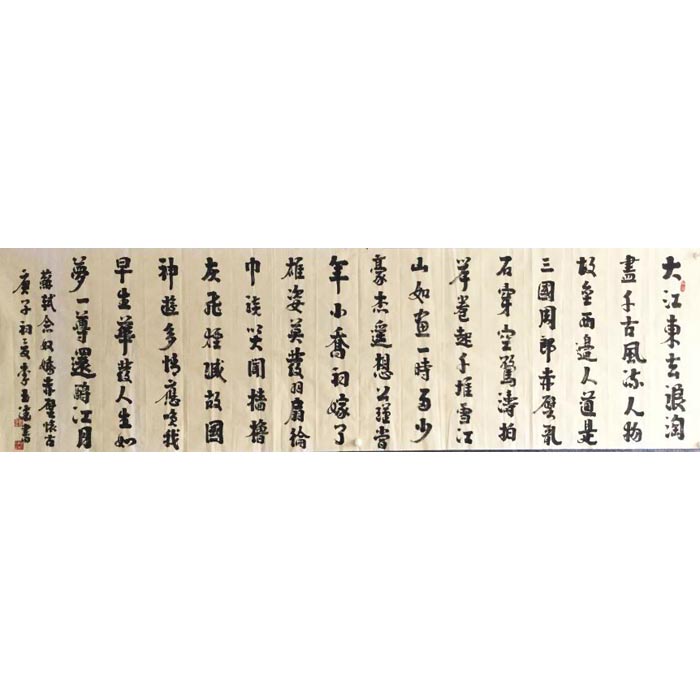 大江東去浪淘
盡千古風流人物
故垒西邊人道是
三國周郎赤壁亂
石穿空驚濤拍
岸卷起千堆雪江
山如画一時多少
豪杰遥想公瑾當
年小喬初嫁了
雄姿英發羽扇綸
巾談笑間檣櫓
灰飛煙滅故國
神遊多情應笑我
早生華發人生如
夢一尊還酹江月
蘇軾念奴嬌赤壁懷古
庚子初夏李書